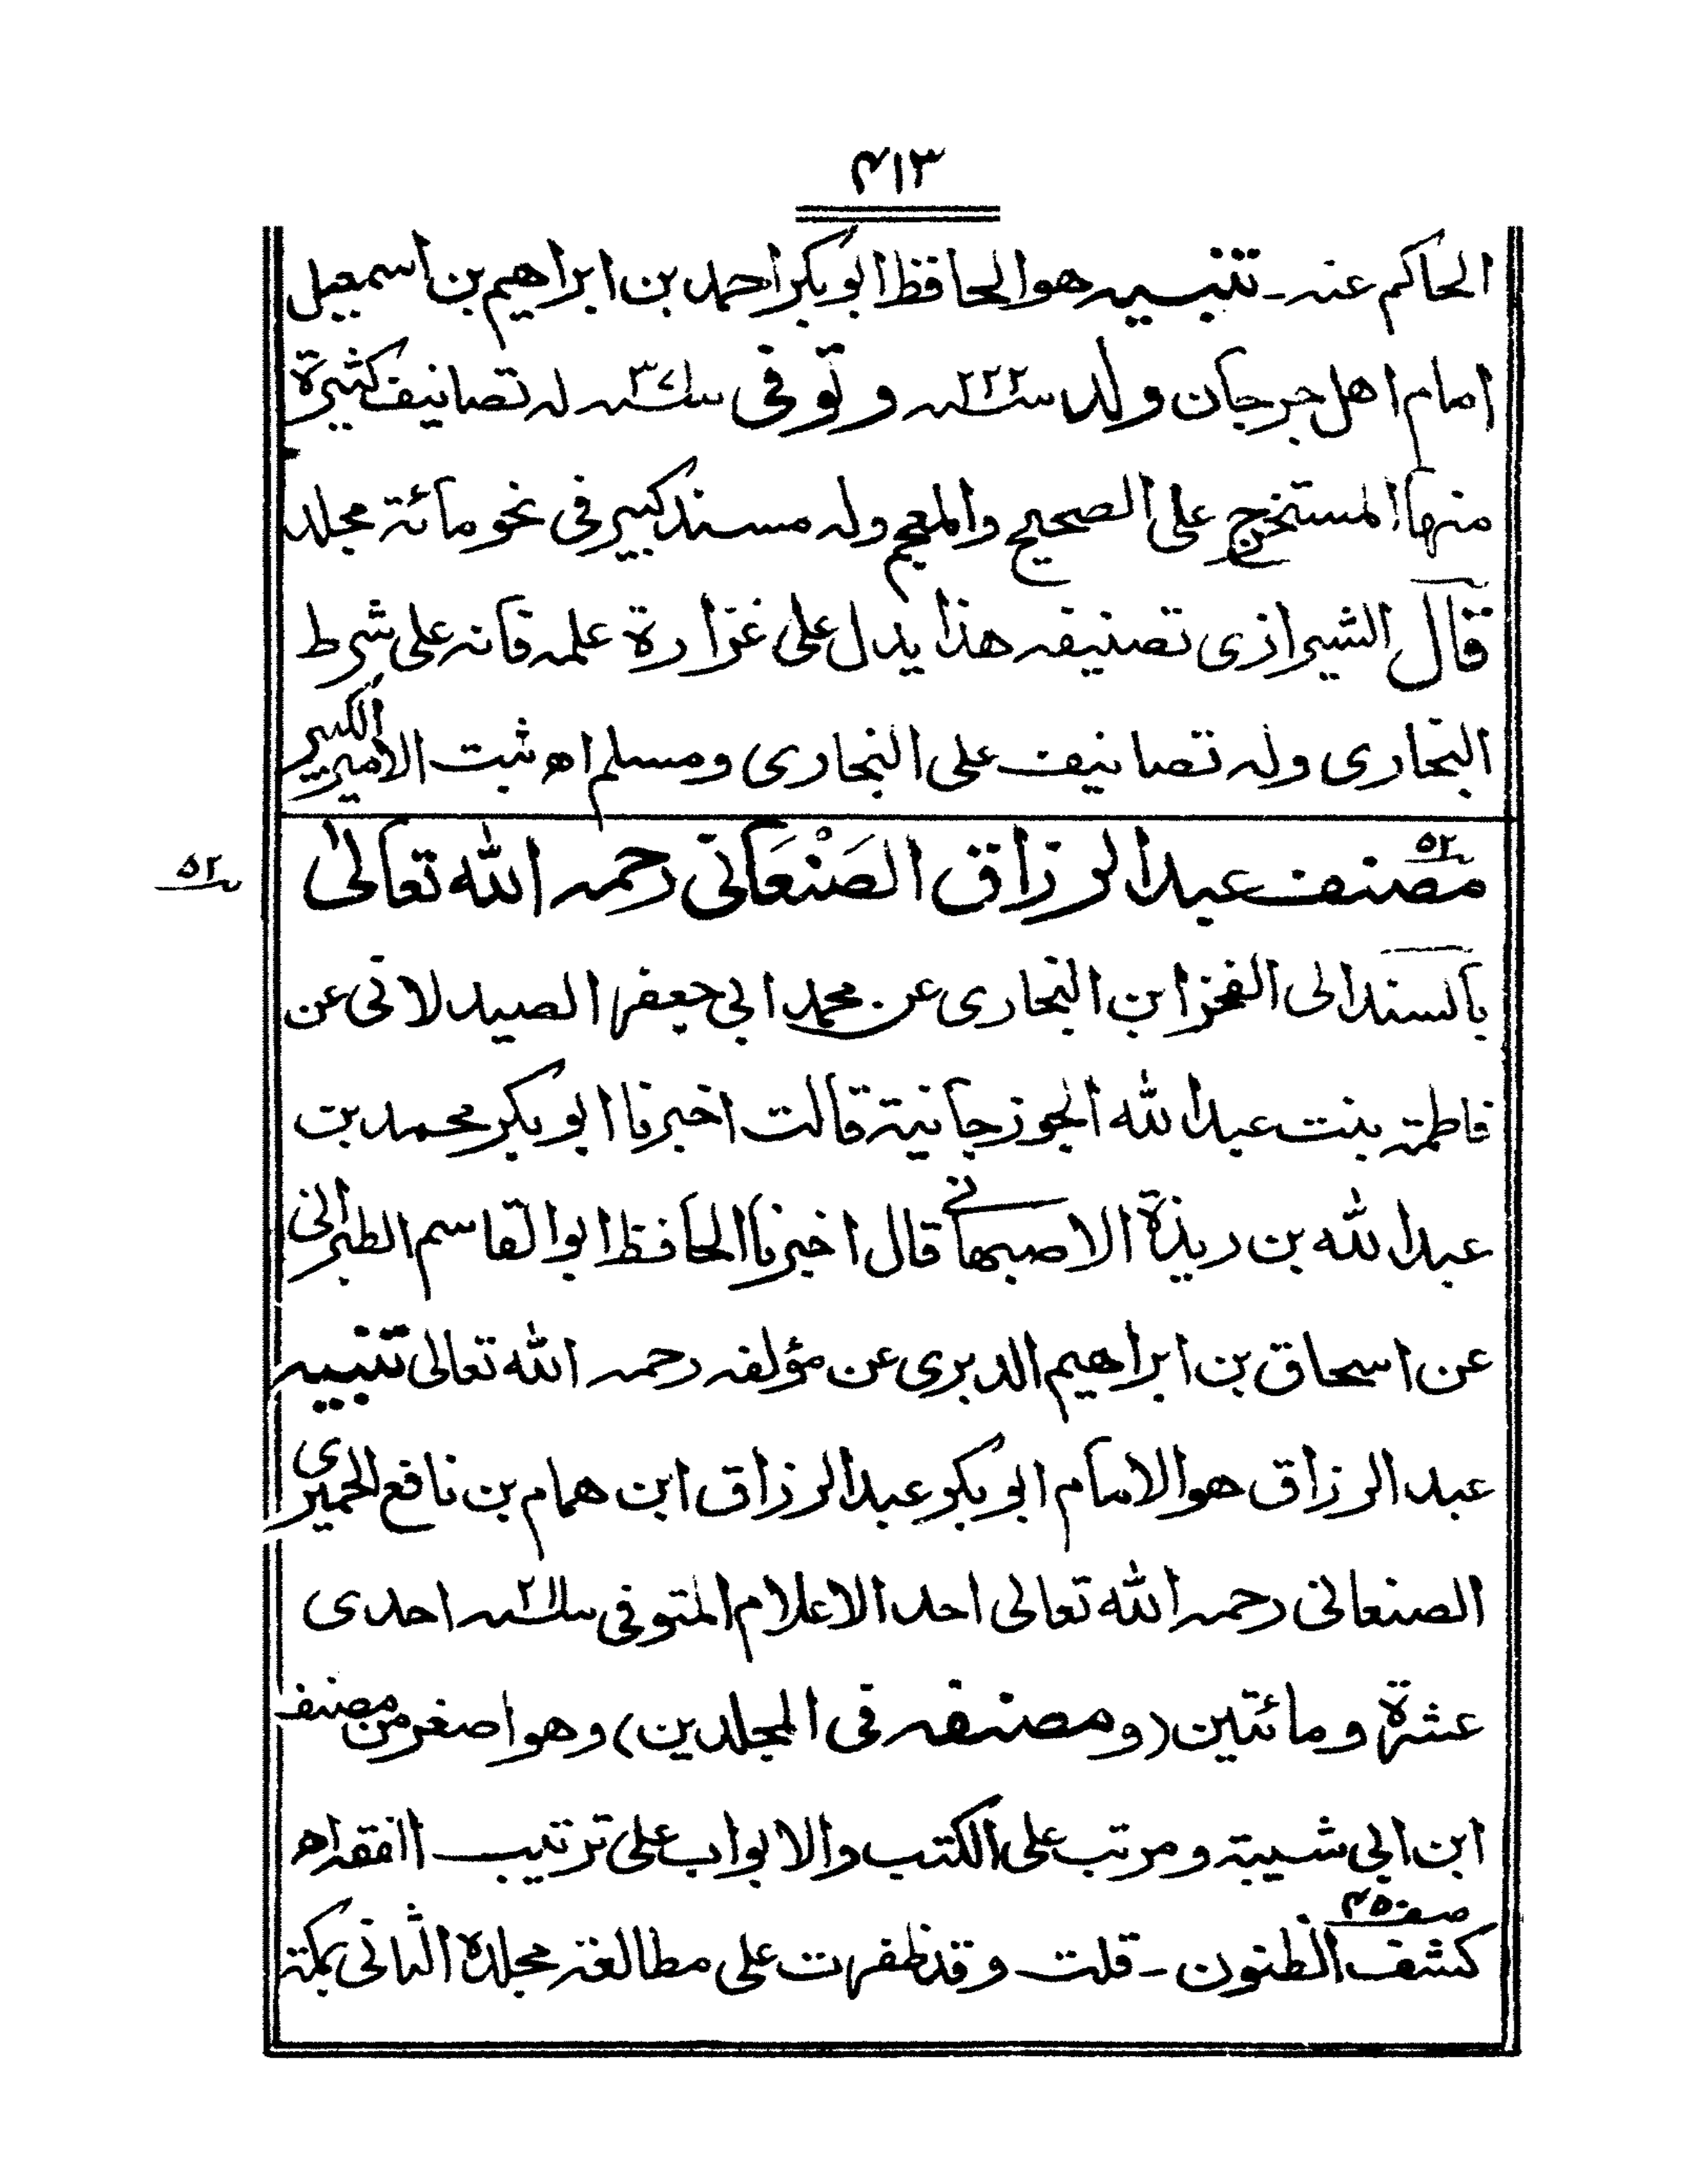 ۴۱۳
الحاكم عنہ ۔ تنبیہ هو الحافظ ابو بكر احمد بن ابراهيم بن اسمعيل
امام اهل جرجان ولد سنہ ۲۲۲ وتوفى سنہ ۳۷۱ لہ تصانيف كثيرة
منها المستخرج على الصحيح والمعجم ولہ مسند كبير فى نحو مائة مجلد
قال الشيرازى تصنيفہ هذا يدل على غزارة علمہ فانہ على شرط
البخارى ولہ تصانيف على البخارى ومسلم اھ ثبت الامير الكبير
۵۲ مصنف عبد الرزاق الصَنْعَانى رحمہ الله تعالىٰ ۵۲
بالسند الى الفخر ابن البخارى عن محمد ابى جعفر الصيدلانى عن
فاطمة بنت عبد الله الجوزجانية قالت اخبرنا ابو بكر محمد بن
عبد الله بن ريذة الاصبهانى قال اخبرنا الحافظ ابو القاسم الطبرانى
عن اسحاق بن ابراهيم الدبرى عن مؤلفہ رحمہ الله تعالى تنبیہ
عبد الرزاق هو الامام ابو بكر عبد الرزاق ابن همام بن نافع الحميرى
الصنعانى رحمہ الله تعالى احد الاعلام المتوفى سنہ ۲۱۱ احدى
عشرة ومائتين (ومصنفہ فى المجلدين) وهو اصغر من مصنف
ابن ابى شيبة ومرتب على الكتب والابواب على ترتيب الفقہ اھ
كشف الظنون صفہ ۴۵ ۔ قلت وقد ظفرت على مطالعة مجلدہ الثانى بمكة